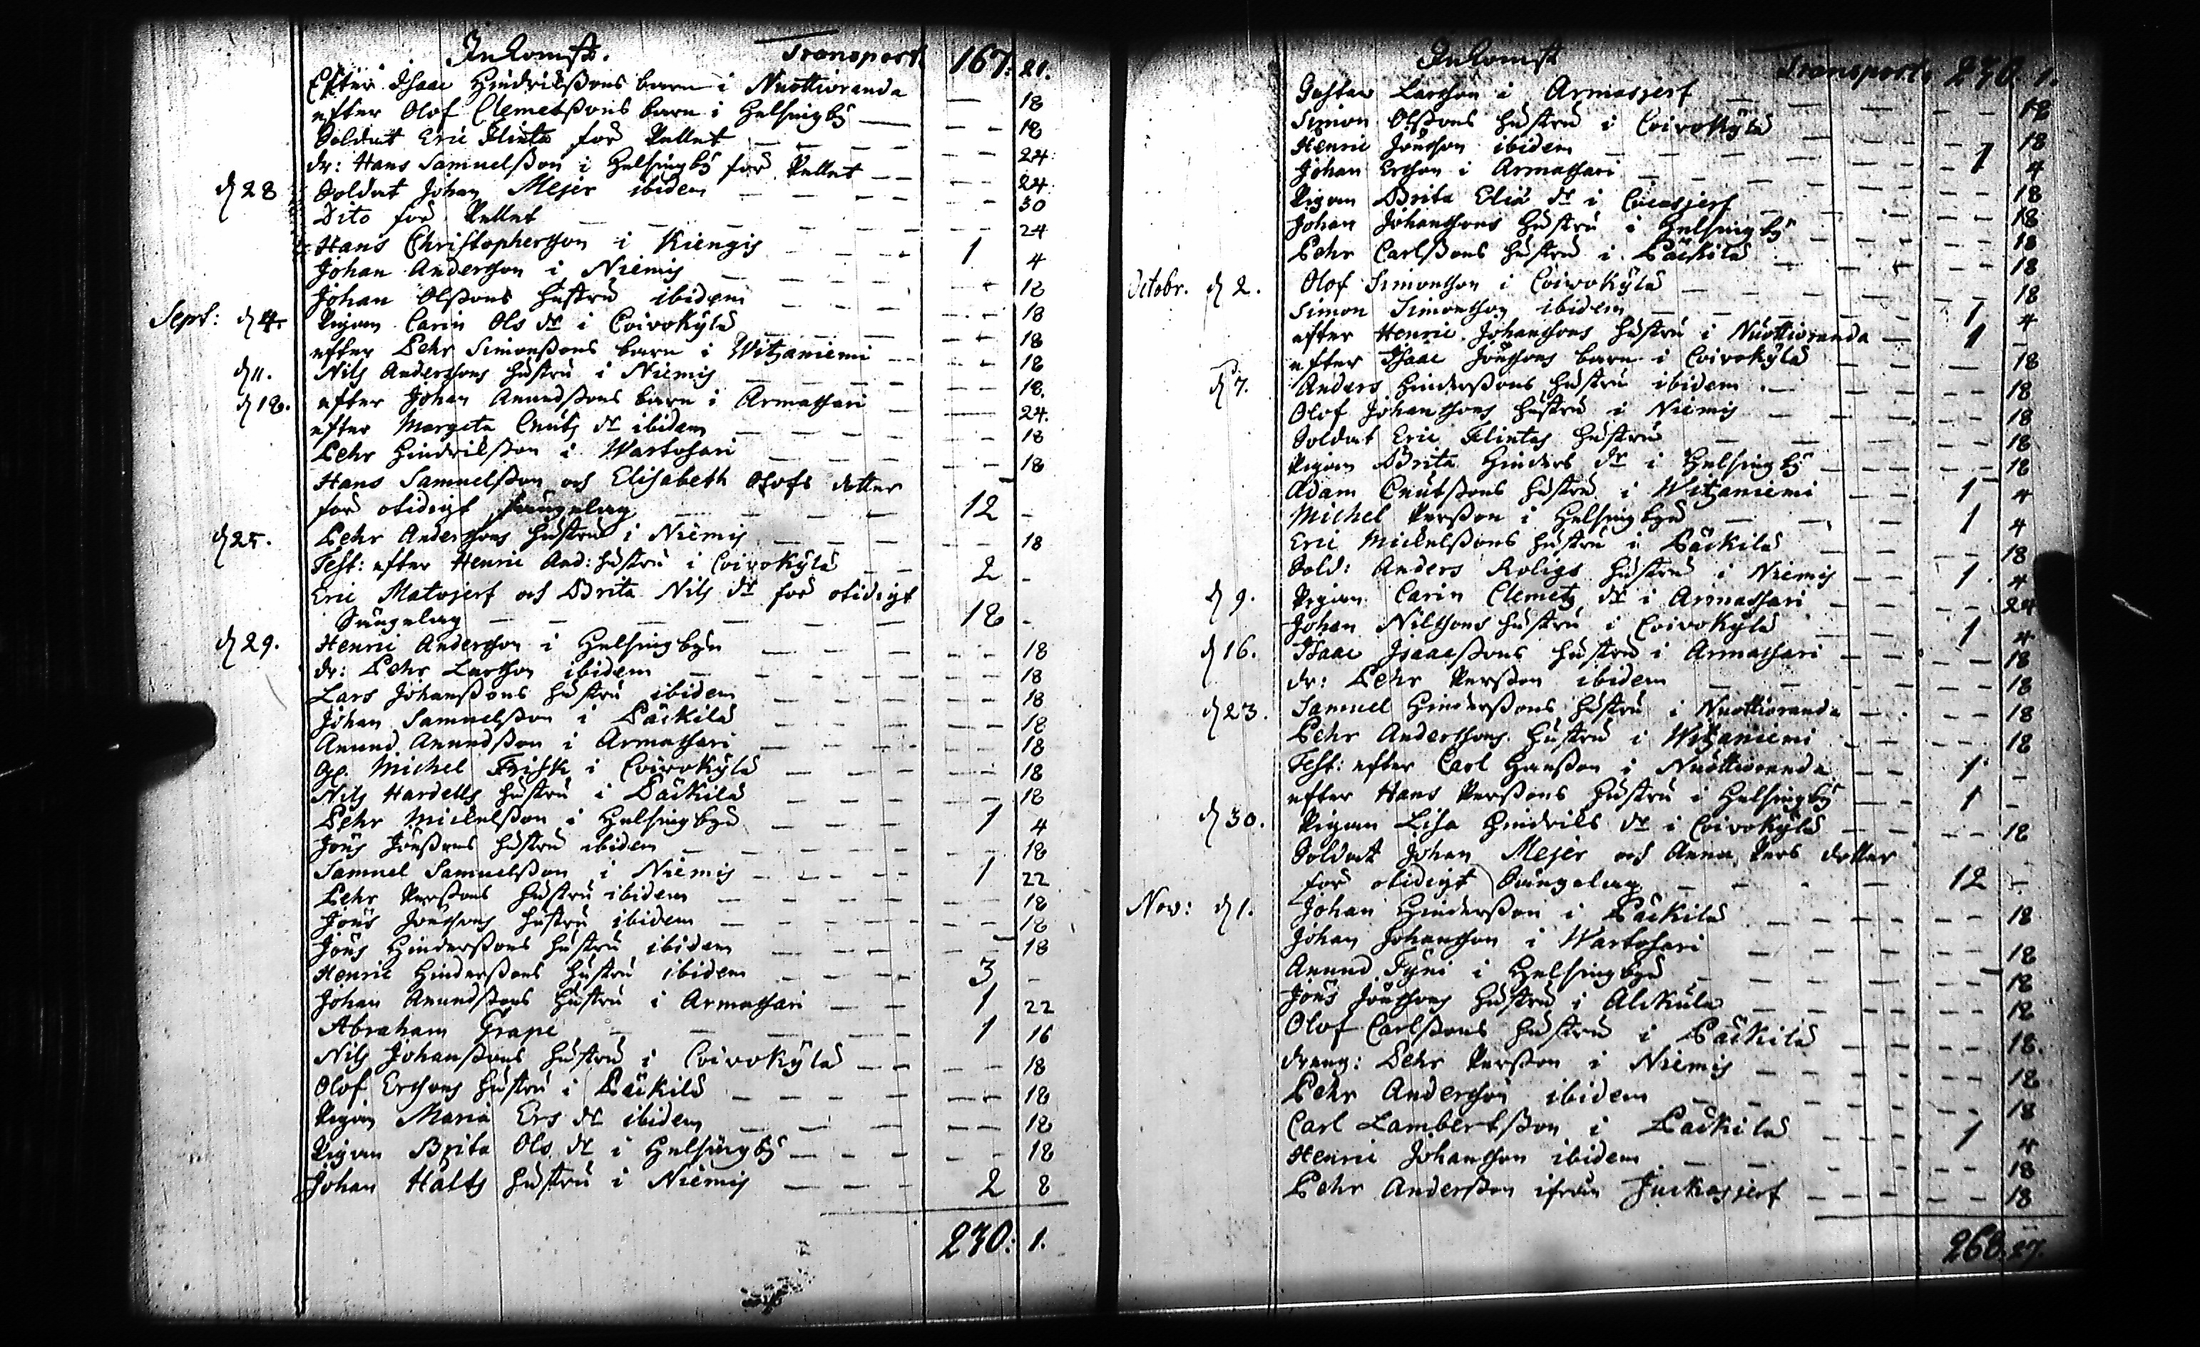 Inkomst. Transport 167: 21.
Efter Isaac Hindrikßons barn i Nuottioranda — 18
efter Olof Clemetßons barn i Helsingbÿ — — 18
Soldat Eric Flinta för Pellet — — 24
dr: Hans Samuelßon i Helsingbÿ för Pellet — — 24
d 28 Soldat Johan Mejer ibidem — — 30
Dito för Pellet — — 24
Hans Christophersson i Kiengis — — 1 4
Johan Andersson i Niemis — — 18
Johan Olßons hustru ibidem — — 18
Sept: d 4. Pigan Carin Ols dr i Coivokÿlä — — 18
efter Pehr Simonßons barn i Witzaniemi — — 18
d 11. Nils Anderssons hustru i Niemis — — 18.
d 18. efter Johan Anundßons barn i Armassari — — 24.
efter Margeta Cnuts dr ibidem — — 18
Pehr Hindrikßon i Wartosari — — 18
Hans Samuelßon och Elisabeth Olofs dotter
för otidigt sängelag — — 12 -
d 25. Pehr Anderssons hustru i Niemis — — 18
Test: efter Henric And: hustru i Coivokÿlä — — 2 -
Eric Matojerf och Brita Nils dr för otidigt
Sängelag — — 18 -
d 29. Henric Andersson i Helsingbyn — — 18
dr: Pehr Larsson ibidem — — 18
Lars Johanßons hustru ibidem — — 18
Johan Samuelßon i Päckilä — — 18
Anund Anundßon i Armassari — — 18
Gl. Michel Frisk i Coivokÿlä — — 18
Nils Hardells hustru i Päckilä — — 18
Pehr Mickelßon i Helsingbyn — — 1 4
Jöns Jönßons hustru ibidem — — 18
Samuel Samuelßon i Niemis — — 1 22
Pehr Perßons hustru ibidem — — 18
Jöns Jönssons hustru ibidem — — 18
Jöns Hinderßons hustru ibidem — — 18
Henric Hinderßons hustru ibidem — — 3 -
Johan Anundßons hustru i Armassari — — 1 22
Abraham Grape — — 1 16
Nils Johanßons hustru i Coivokÿlä — — 18
Olof Erssons hustru i Päckilä — — 18
Pigan Maria Ers dr ibidem — — 18
Pigan Brita Ols dr i Helsingbÿ — — 18
Johan Halts hustru i Niemis — — 2 8
230: 1.
Inkomst Transport 230. 1.
Gustav Larsson i Armasjerf — — 18
Simon Olßons hustru i Coivokÿlä — — 18
Henric Jönsson ibidem — — 1 4
Johan Ersson i Armassari — — 18
Pigan Brita Eliæ dr i — — 18
Johan Johanssons hustru i Helsingbÿ — — 18
Pehr Carlßons hustru i Päckilä — — 18
Octobr. d 2. Olof Simonsson i Coivokÿlä — — 18
Simon Simonsson ibidem — — 1 4
efter Henric Johanssons hustru i Nuottioranda — 1 -
efter Isaac Jönssons barn i Coivokÿlä — — 18
d 7. Anders Hinderßons hustru ibidem — — 18
Olof Johanssons hustru i Niemis — — 18
Soldat Eric Flintas hustru — — 18
Pigan Brita Hinders dr i Helsingbÿ — — 18
Adam Cnutßons hustru i Witzaniemi — — 1 4
Michel Perßon i Helsingbyn — — 1 4
Eric Mickelßons hustru i Päckilä — — 18
Sold: Anders Roligs hustru i Niemis — — 1 4
d 9. Pigan Carin Clemets dr i Armassari — — 24
Johan Nilssons hustru i Coivokÿlä — — 1 4
d 16. Isaac Isaacßons hustru i Armassari — — 18
dr: Pehr Perßon ibidem — — 18
d 23. Samuel Hinderßons hustru i Nuottioranda — — 18
Pehr Anderssons hustru i Witzaniemi — — 18
Test: efter Carl Hanßon i Nuottioranda — — 1 -
efter Hans Perßons hustru i Helsingbÿ — — 1 -
d 30. Pigan Lisa Hindriks dr i Coivokÿlä — — 18
Soldat Johan Mejer och Anna Pers dotter
för otidigt Sängelag — — 12 -
Nov: d 1. Johan Hinderßon i Päckilä — — 18
Johan Johansson i Wartosari — — 18
Anund Fÿni i Helsingbyn — — 18
Jöns Jönssons hustru i Alckula — — 18
Olof Carlßons hustru i Päckilä — — 18.
dreng: Pehr Perßon i Niemis — — 18
Pehr Andersson ibidem — — 18
Carl Lambertßon i Päckilä — — 1 4
Henric Johansson ibidem — — 18
Pehr Anderßon ifrån Juckasjerf — — 18
268. 27.